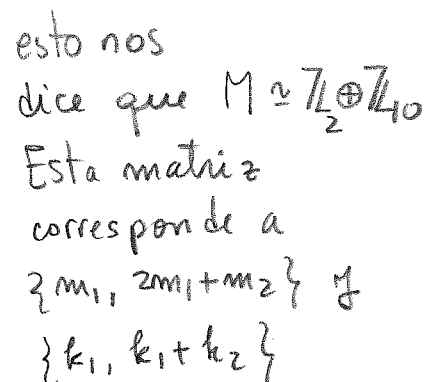 esto nos
dice que M ≃ ℤ₂⊕ℤ₄₀
Esta matriz
corresponde a
{m₁, 2m₁+m₂} y
{k₁, k₁+k₂}